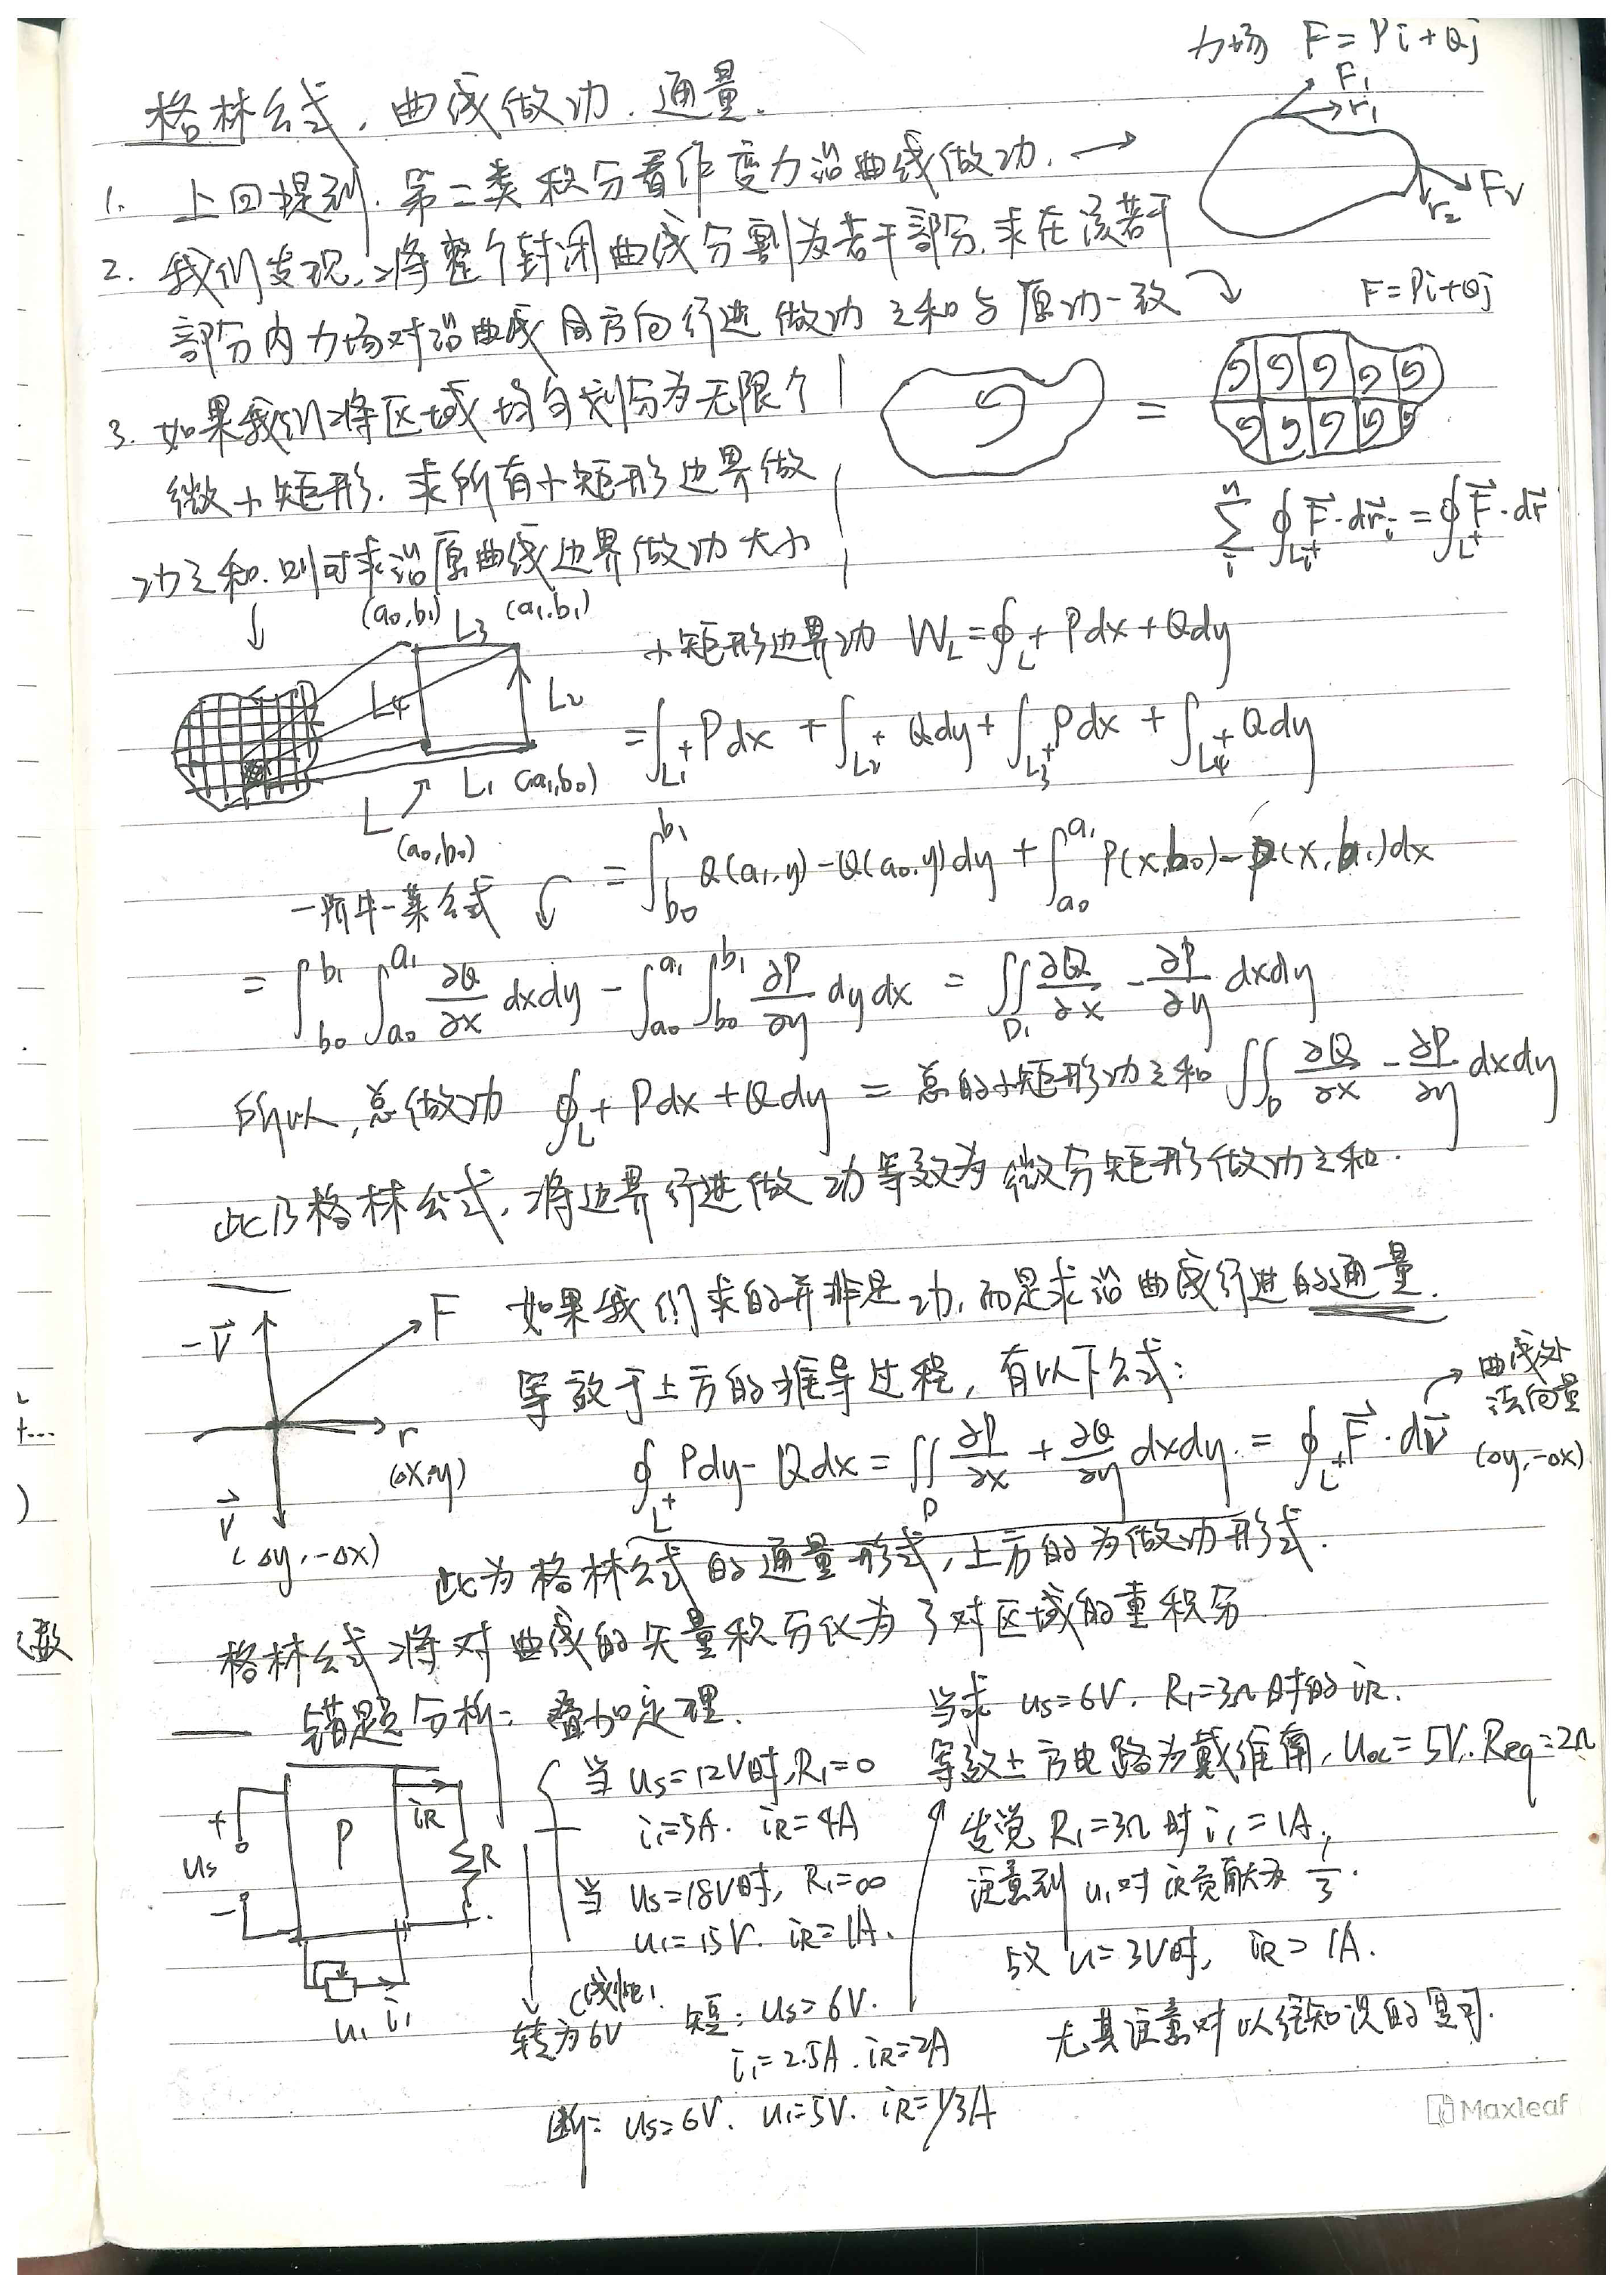 力场 F = Pi + Qj
格林公式, 曲线做功. 通量.
F₁
r₁
1. 上回提到, 第二类积分看作变力沿曲线做功. →
r₂
2. 我们发现, 将整个封闭曲线分割为若干部分. 求在该若干
部分内力场对沿曲线同方向行进做功之和与原功一致
F = Pi + Qj
3. 如果我们将区域均匀划分为无限个
微小矩形. 求所有小矩形边界做
功之和. 则可求沿原曲线边界做功大小
=
∑ᵢⁿ ∮_{Lᵢ⁺} F⃗·dr⃗ᵢ = ∮_{L⁺} F⃗·dr⃗
(a₀,b₁) L₃ (a₁,b₁)
L₄ L₂
L₁ (a₁,b₀)
L
(a₀,b₀)
小矩形边界功 W_L = ∮_{L⁺} Pdx + Qdy
= ∫_{L₁⁺} Pdx + ∫_{L₂⁺} Qdy + ∫_{L₃⁺} Pdx + ∫_{L₄⁺} Qdy
= ∫_{b₀}^{b₁} Q(a₁,y) - Q(a₀,y) dy + ∫_{a₀}^{a₁} P(x,b₀) - P(x,b₁) dx
一阶牛-莱公式
= ∫_{b₀}^{b₁} ∫_{a₀}^{a₁} ∂Q/∂x dxdy - ∫_{a₀}^{a₁} ∫_{b₀}^{b₁} ∂P/∂y dydx = ∬_{D₁} ∂Q/∂x - ∂P/∂y dxdy
所以, 总做功 ∮_{L⁺} Pdx + Qdy = 总的小矩形功之和 ∬_D ∂Q/∂x - ∂P/∂y dxdy
此乃格林公式, 将边界行进做功等效为微分矩形做功之和.
如果我们求的并非是功, 而是求沿曲线行进的通量.
等效于上方的推导过程, 有以下公式:
-V⃗
F
r
(Δx,Δy)
V⃗
(Δy,-Δx)
∮_{L⁺} Pdy - Qdx = ∬_D ∂P/∂x + ∂Q/∂y dxdy = ∮_{L⁺} F⃗·dV⃗
曲线处
法向量
(Δy,-Δx)
此为格林公式的通量形式, 上方的为做功形式.
格林公式将对曲线的矢量积分化为了对区域的重积分
错题分析: 叠加定理.
+
us
-
P
iR
R
u₁ i₁
当 us=12V时, R₁=0
i₁=5A. iR=4A
当 us=18V时, R₁=∞
u₁=15V. iR=1A.
线性!
转为6V
短: us=6V.
i₁=2.5A. iR=2A
断: us=6V. u₁=5V. iR=1/3A
当求 us=6V. R₁=3Ω时的iR.
等效上方电路为戴维南, Uoc=5V. Req=2Ω
发觉 R₁=3Ω时 i₁=1A,
注意到 u₁对iR贡献为 1/3.
故 u=3V时, iR= 1A.
尤其注意对以往知识的复习.
Maxleaf